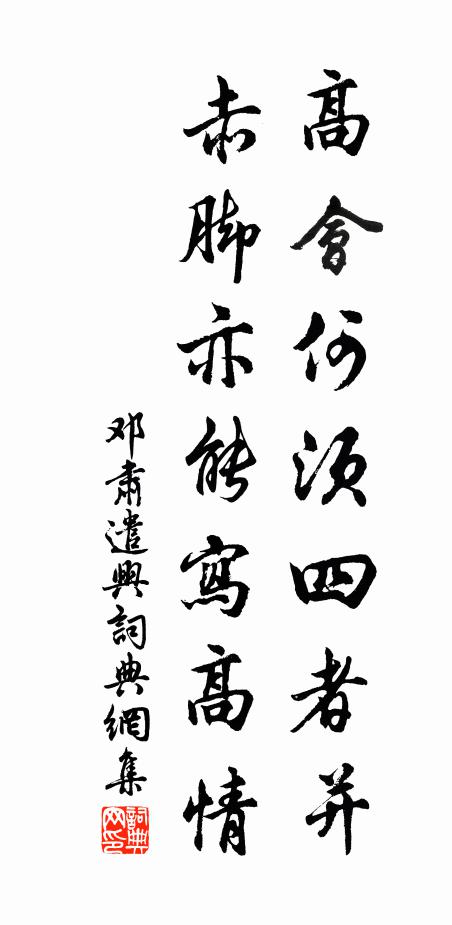 高會何須四者并
赤脚亦能寫高情
邓肅遣興詞典網集
詞典網印